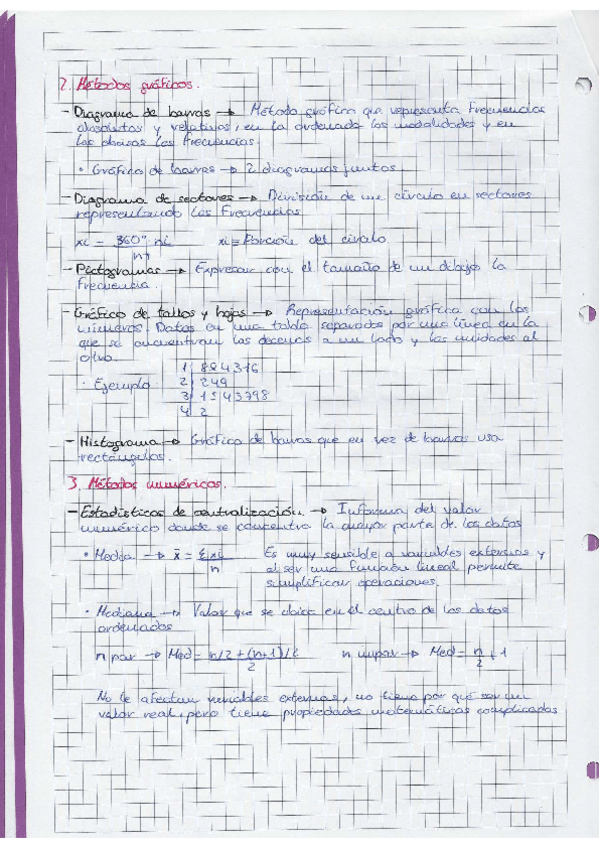 2. Métodos gráficos.
- Diagrama de barras → Método gráfico que representa frecuencias
absolutas y relativas, en la ordenada las modalidades y en
las abcisas las frecuencias.
· Gráfico de barras → 2 diagramas juntos.
- Diagrama de sectores → División de un círculo en sectores
representando las frecuencias
xi = 360º · ni xi = Porción del círculo
n
- Pictogramas → Expresar con el tamaño de un dibujo la
frecuencia.
- Gráfico de tallos y hojas → Representación gráfica con los
números. Datos en una tabla separados por una línea en la
que se encuentran las decenas a un lado y las unidades al
otro.
· Ejemplo
1 | 884316
2 | 249
3 | 1543798
4 | 2
- Histograma → Gráfico de barras que en vez de barras usa
rectángulos.
3. Métodos numéricos.
- Estadísticos de centralización → Informa del valor
numérico donde se concentra la mayor parte de los datos
· Media → x̄ = Σxi Es muy sensible a variables externas y
n al ser una función lineal permite
simplificar operaciones.
· Mediana → Valor que se ubica en el centro de los datos
ordenados
n par → Med = n/2 + (n+1)/2 n impar → Med = n + 1
2 2
No le afectan variables externas, no tiene por qué ser un
valor real, pero tiene propiedades matemáticas complicadas